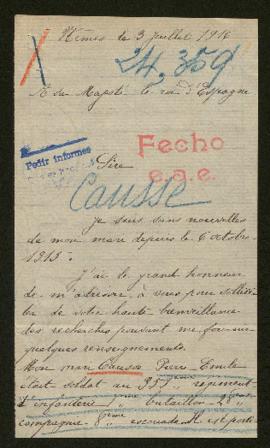 Nîmes le 3 juillet 1916
24,359
A Sa Majesté le roi d'Espagne
Pedir informes
Fecho
e.a.e.
Sire
Causse
je suis sans nouvelles
de mon mari depuis le 6 octobre
1915.
J'ai le grand honneur
de m'adresser à vous pour sollici-
ter de votre haute bienveillance
des recherches pouvant me fournir
quelques renseignements.
Mon mari Causse Pierre Emile
était soldat au régiment
d'infanterie bataillon
compagnie escouade. Il est porté